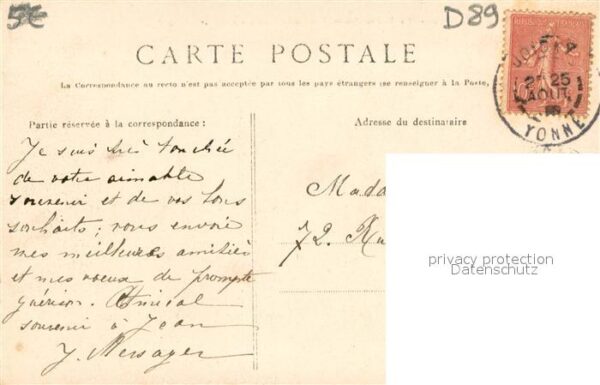 5€
D89
CARTE POSTALE
La Correspondance au recto n'est pas acceptée par tous les pays étrangers (se renseigner à la Poste,
JOIGNY
2E 25
AOUT
YONNE
Partie réservée à la correspondance :
Adresse du destinataire
Je suis très touchée
de votre aimable
souvenir et de vos bons
souhaits ; vous envoie
mes meilleures amitiés
et mes vœux de prompte
guérison. Amical
souvenir à Jean
J. Messager
Mada
72. Ru
privacy protection
Datenschutz